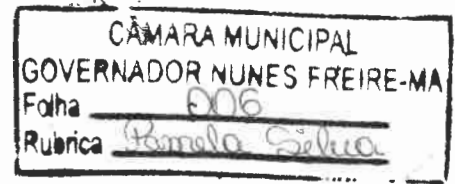 CÂMARA MUNICIPAL
GOVERNADOR NUNES FREIRE-MA
Folha 006
Rubrica Pamela Silva